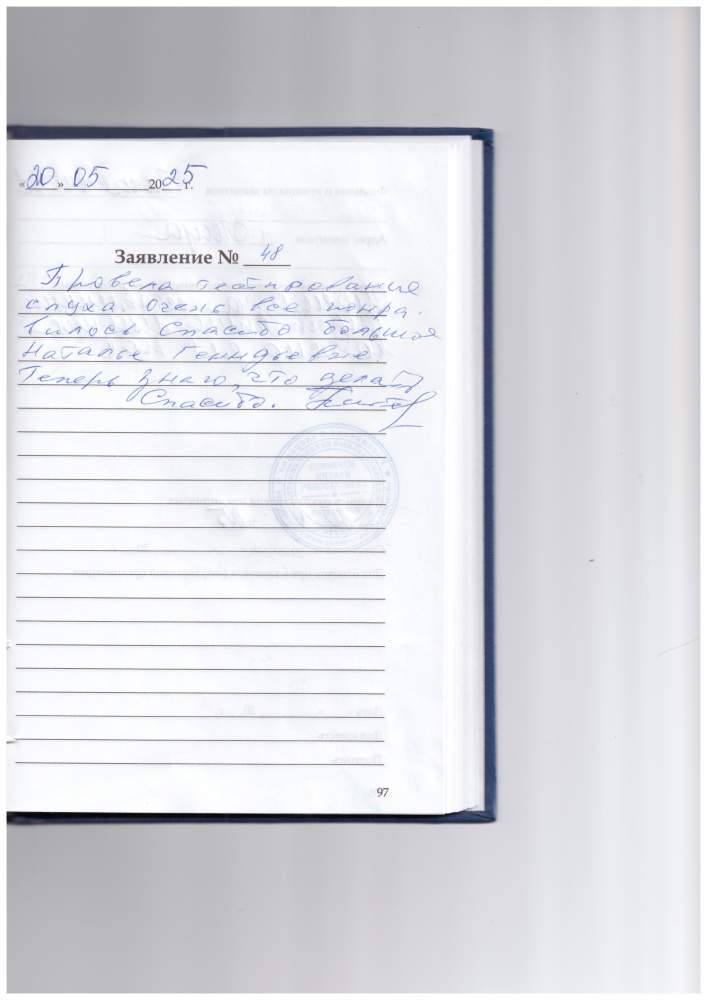 «20» 05 2025 г.
Заявление № 48
Провела тестирование
слуха очень все понра-
вилось Спасибо большое
Наталье Генндьевне.
Теперь знаю, что делать
Спасибо.
97